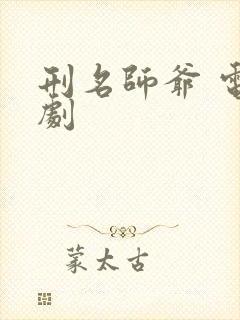 刑名師爺 電
劇
蒙太古